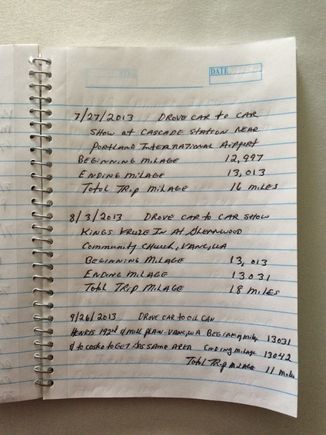 DATE
7/27/2013 DROVE CAR to CAR
SHOW at CASCADE STATION NEAR
PORTLAND INTERNATIONAL AIRPORT
BEGINNING MILAGE 12,997
ENDING MILAGE 13,013
Total Trip MILAGE 16 MILES
8/3/2013 DROVE CAR to CAR SHOW
KINGS KRUZE IN At GLENNWOOD
Community CHURCH, VANC, WA
BEGINNING MILAGE 13,013
ENDING MILAGE 13031
Total Trip MILAGE 18 MILES
9/26/2013 DROVE CAR to OIL CAN
HENRIS 192nd 4 MILL PLAN VANC, WA BEGINNING MILAG 13031
to COSTCO to GET GAS SAME AREA ENDING MILAGE 13042
Total Trip MILAGE 11 MILES